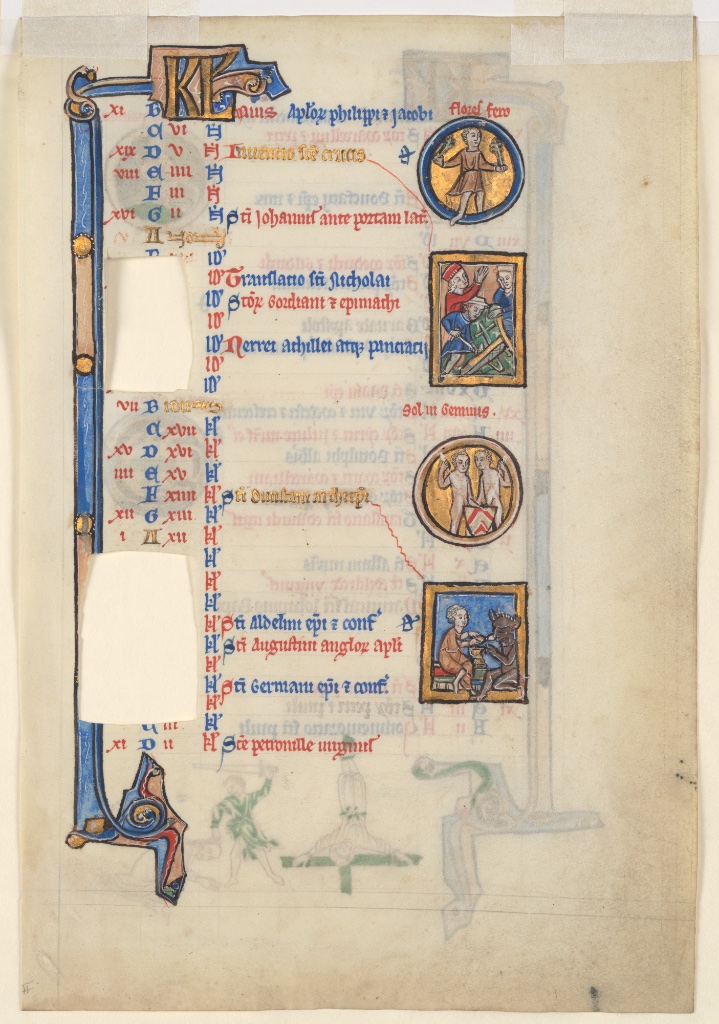 KL
xi B Maius Aploꝝ philippi ⁊ jacobi flores fero
C vi N
xix D v N Inventio sce crucis
viii E iiii N
F iii N
xvi G ii N Sci Johannis ante portam lat.
v A
Id
Id Translatio sci Nicholai
Id Scoꝝ Gordiani ⁊ epimachi
Id
Id Nerei achillei atq; pancracij
Id
Id
vii B
C xvii kl Sol in Geminis.
xv D xvi kl
iiii E xv kl
F xiiii kl Sci Dunstani archiepi
xii G xiii kl
i A xii kl
kl
kl
kl
kl Sci Aldelmi epi ⁊ conf
kl Sci Augustini angloꝝ apli
kl
kl Sci Germani epi ⁊ conf.
kl
C iii kl
xi D ii kl Sce petronille virginis